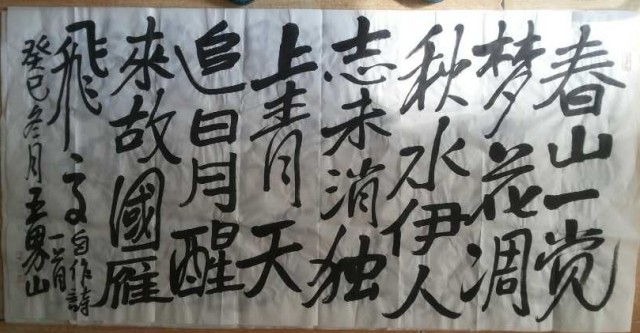 春山一觉
梦花凋
秋水伊人
志未消独
上青天
追日月醒
來故國雁
飛高自作詩
癸巳冬月男山